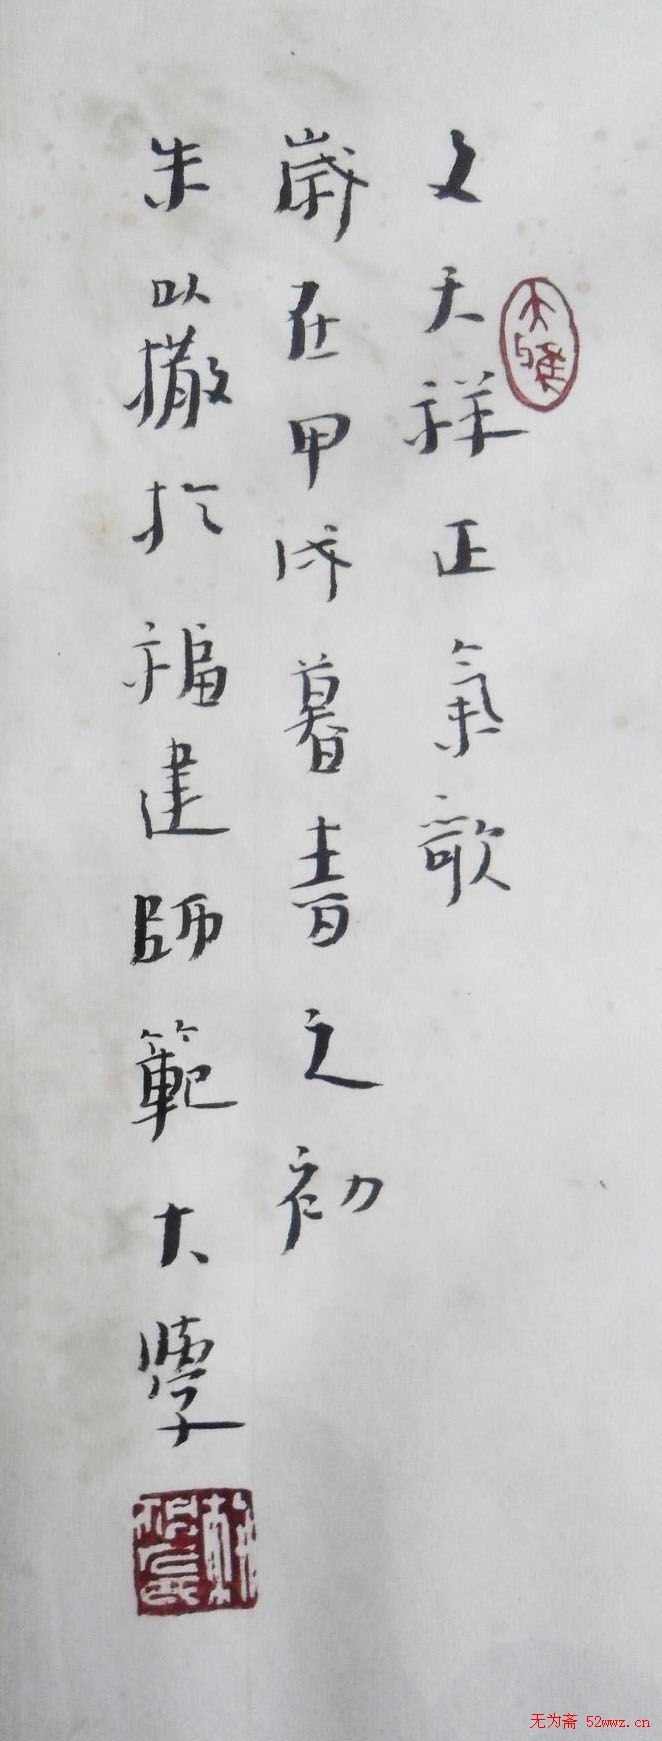 文天祥正氣歌
歲在甲戌暮春之初
朱以撒於福建師範大學
无为斋 52wwz.cn